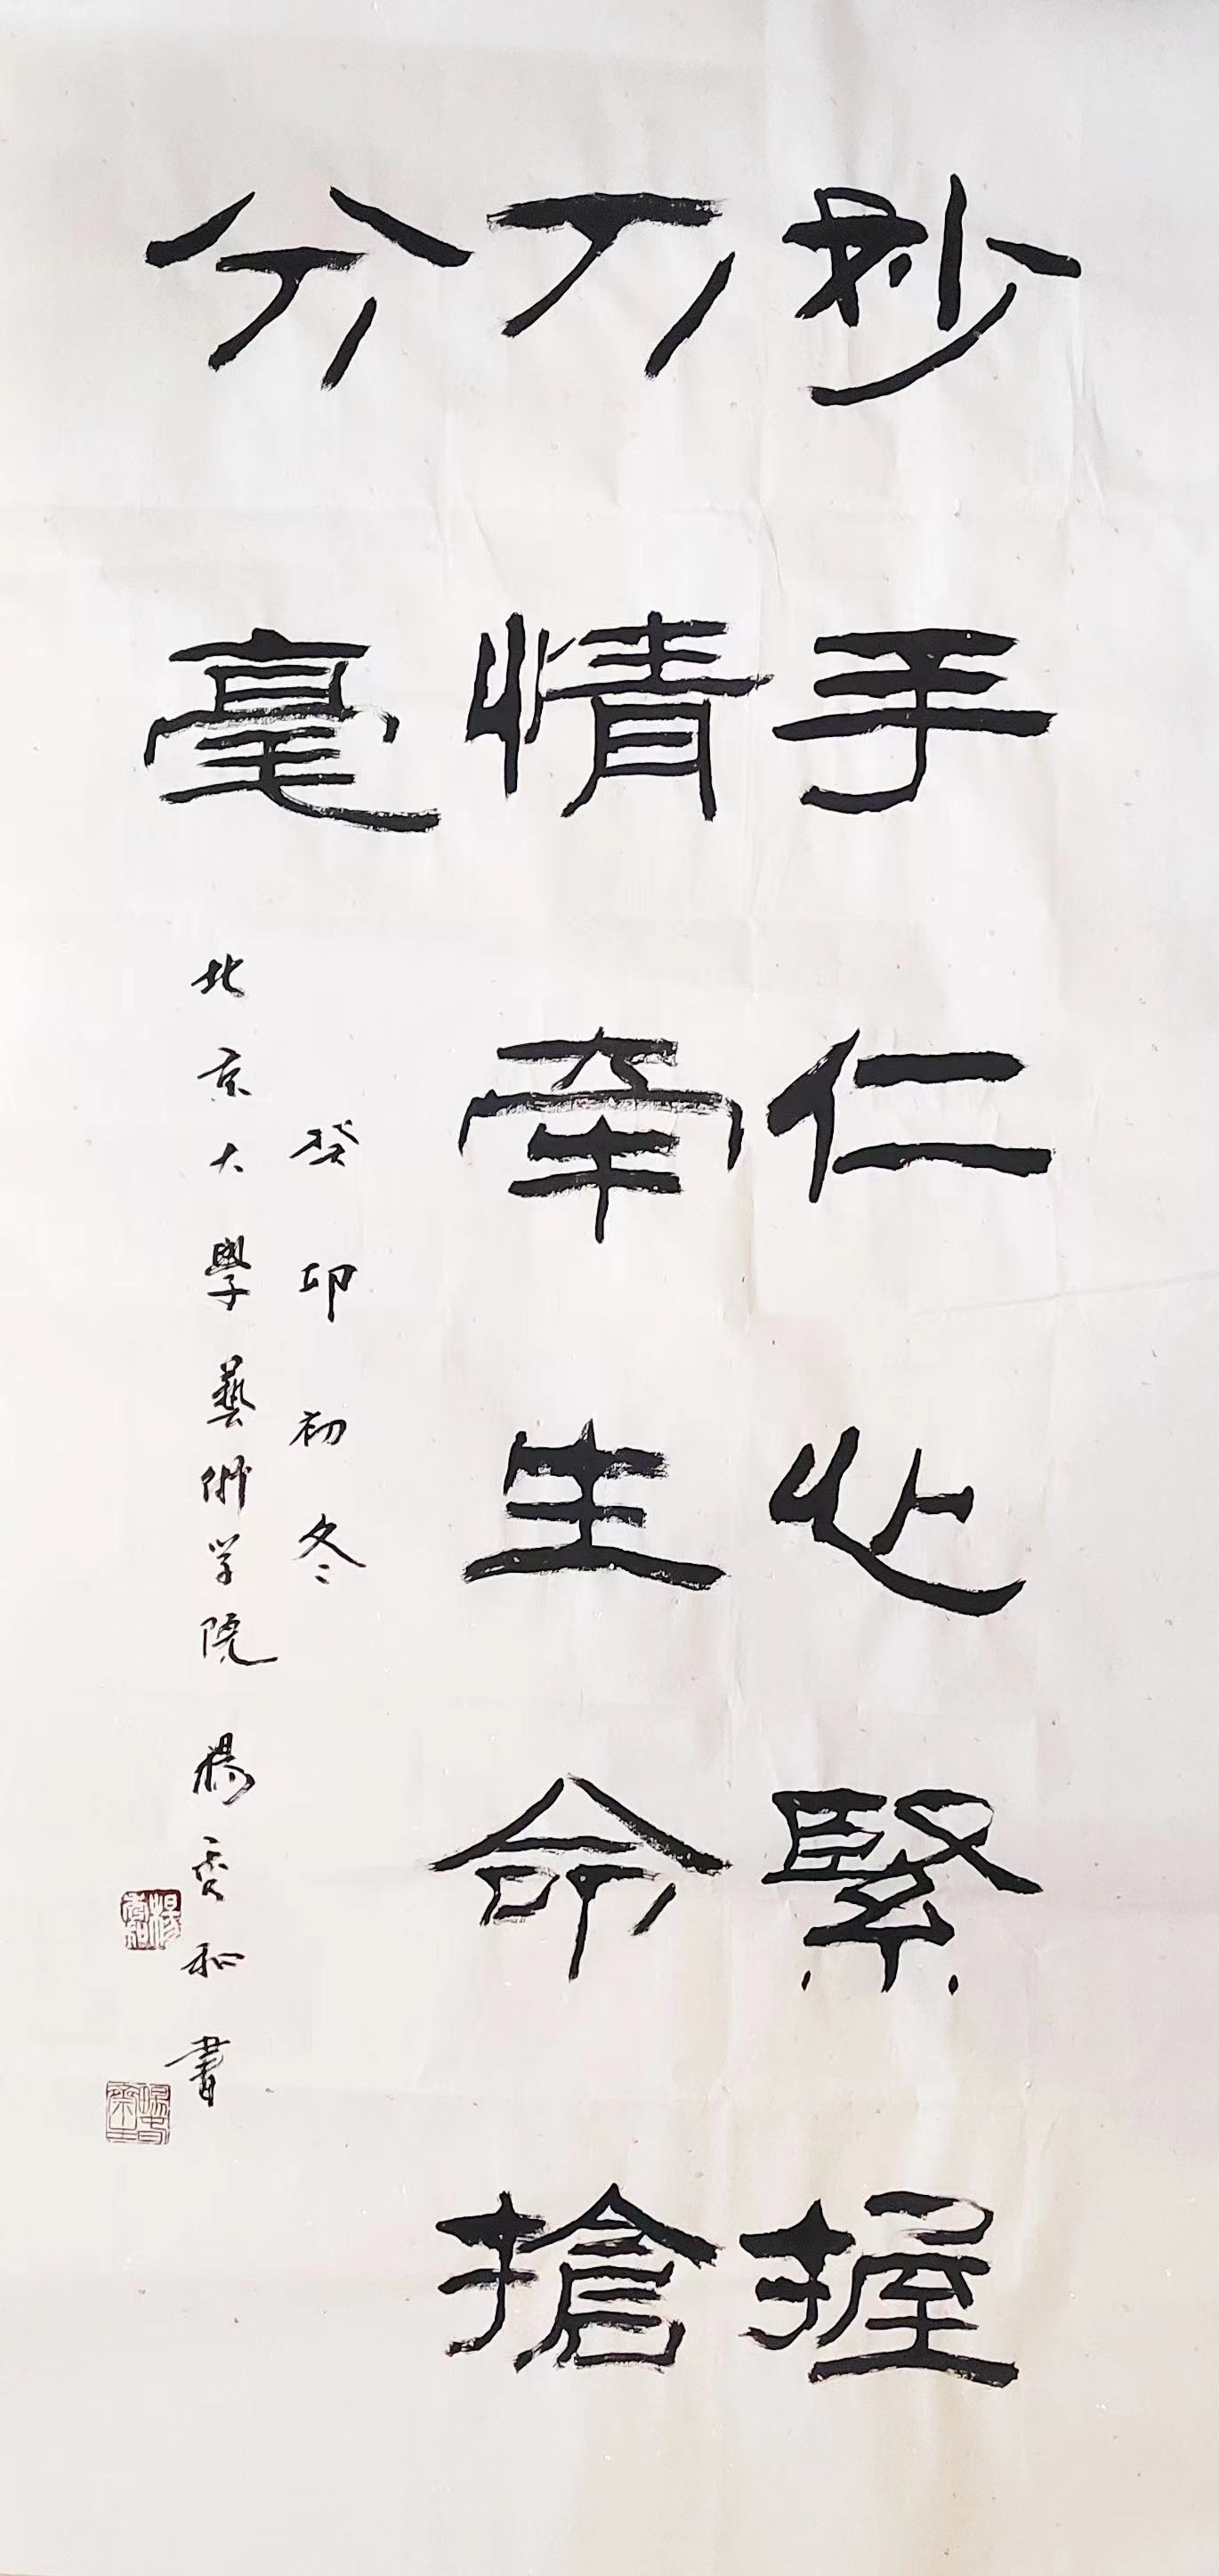 妙手仁心緊握
刀情牽生命搶
分毫
癸卯初冬
北京大學藝術学院 楊秀和書